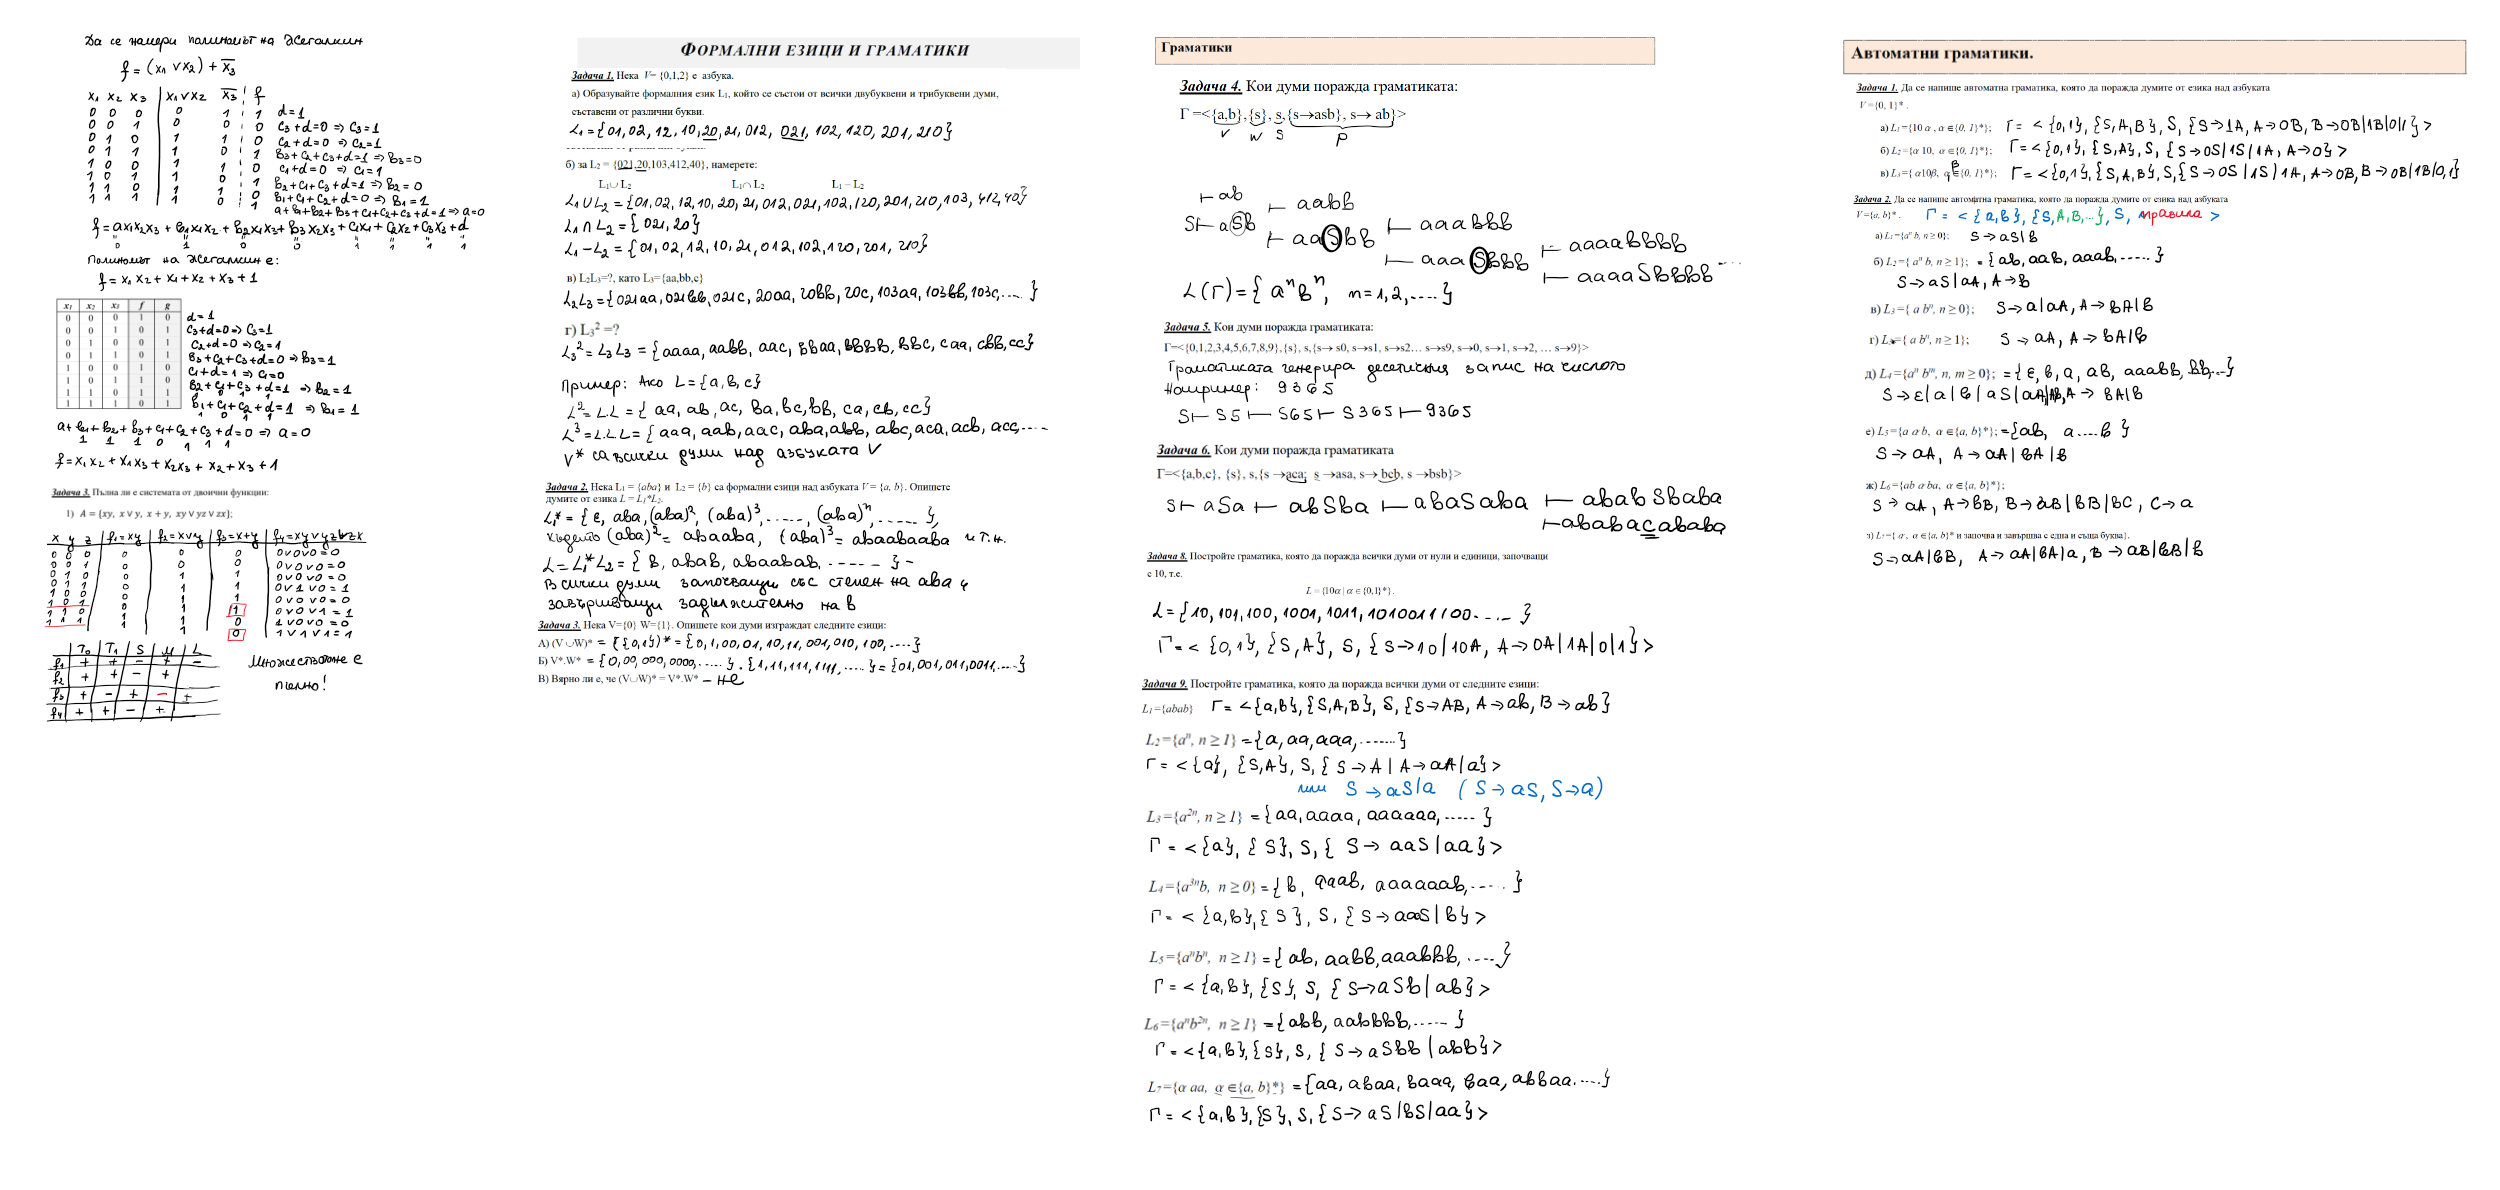 Да се намери полиномът на Жегалкин
f = (x₁ ∨ x₂) + x̅₃
x₁ x₂ x₃ | x₁∨x₂ x̅₃ f
0 0 0 | 0 1 1 d=1
0 0 1 | 0 0 0 c₃+d=0 ⇒ c₃=1
0 1 0 | 1 1 0 c₂+d=0 ⇒ c₂=1
0 1 1 | 1 0 1 b₃+c₂+c₃+d=1 ⇒ b₃=0
1 0 0 | 1 1 0 c₁+d=0 ⇒ c₁=1
1 0 1 | 1 0 1 b₂+c₁+c₃+d=1 ⇒ b₂=0
1 1 0 | 1 1 0 b₁+c₁+c₂+d=0 ⇒ b₁=1
1 1 1 | 1 0 1 a+b₁+b₂+b₃+c₁+c₂+c₃+d=1 ⇒ a=0
f = ax₁x₂x₃ + b₁x₁x₂ + b₂x₁x₃ + b₃x₂x₃ + c₁x₁ + c₂x₂ + c₃x₃ + d
0 1 0 0 1 1 1 1
Полиномът на Жегалкин е:
f = x₁x₂ + x₁ + x₂ + x₃ + 1
x₁ x₂ x₃ f g
0 0 0 1 0 d=1
0 0 1 0 1 c₃+d=0 ⇒ c₃=1
0 1 0 0 1 c₂+d=0 ⇒ c₂=1
0 1 1 0 1 b₃+c₂+c₃+d=0 ⇒ b₃=1
1 0 0 1 0 c₁+d=1 ⇒ c₁=0
1 0 1 1 0 b₂+c₁+c₃+d=1 ⇒ b₂=1
1 1 0 1 0 b₁+c₁+c₂+d=1 ⇒ b₁=1
1 1 1 0 1
a+b₁+b₂+b₃+c₁+c₂+c₃+d=0 ⇒ a=0
1 1 1 0 1 1 1
f = x₁x₂ + x₁x₃ + x₂x₃ + x₂ + x₃ + 1
Задача 3. Пълна ли е системата от двоични функции:
1) A = {xy, x∨y, x+y, xy∨yz∨zx};
x y z | f₁=xy | f₂=x∨y | f₃=x+y | f₄=xy∨yz∨zx
0 0 0 | 0 | 0 | 0 | 0∨0∨0=0
0 0 1 | 0 | 0 | 0 | 0∨0∨0=0
0 1 0 | 0 | 1 | 1 | 0∨0∨0=0
0 1 1 | 0 | 1 | 1 | 0∨1∨0=1
1 0 0 | 0 | 1 | 1 | 0∨0∨0=0
1 0 1 | 0 | 1 | 1 | 0∨0∨1=1
1 1 0 | 1 | 1 | 0 | 1∨0∨0=0
1 1 1 | 1 | 1 | 0 | 1∨1∨1=1
T₀ T₁ S M L
f₁ + + − + −
f₂ + + − +
f₃ + − + − +
f₄ + + − +
Множеството не е
пълно!
ФОРМАЛНИ ЕЗИЦИ И ГРАМАТИКИ
Задача 1. Нека V= {0,1,2} е азбука.
а) Образувайте формалния език L₁, който се състои от всички двубуквени и трибуквени думи,
съставени от различни букви.
L₁={01,02,12,10,20,21,012,021,102,120,201,210}
б) за L₂ = {021,20,103,412,40}, намерете:
L₁∪ L₂ L₁∩ L₂ L₁ – L₂
L₁∪L₂={01,02,12,10,20,21,012,021,102,120,201,210,103,412,40}
L₁∩L₂={021,20}
L₁−L₂={01,02,12,10,21,012,102,120,201,210}
в) L₂L₃=?, като L₃={aa,bb,c}
L₂L₃={021aa,021bb,021c,20aa,20bb,20c,103aa,103bb,103c,.....}
г) L₃² =?
L₃²=L₃L₃={aaaa,aabb,aac,bbaa,bbbb,bbc,caa,cbb,cc}
Пример: Ако L={a,b,c}
L²=L.L={aa,ab,ac,ba,bc,bb,ca,cb,cc}
L³=L.L.L={aaa,aab,aac,aba,abb,abc,aca,acb,acc,.....
V* са всички думи над азбуката V
Задача 2. Нека L₁ = {aba} и L₂ = {b} са формални езици над азбуката V = {a, b}. Опишете
думите от езика L = L₁*L₂.
L₁*={ε, aba,(aba)²,(aba)³,......,(aba)ⁿ,......},
където (aba)²=abaaba, (aba)³=abaabaaba и т.н.
L=L₁*L₂={b, abab, abaabab,......} -
всички думи започващи със степен на aba и
завършващи задължително на b
Задача 3. Нека V={0} W={1}. Опишете кои думи изграждат следните езици:
А) (V ∪W)* = ({0,1})*={0,1,00,01,10,11,001,010,100,....}
Б) V*.W* ={0,00,000,0000,......}.{1,11,111,1111,.....}={01,001,011,0011,....}
В) Вярно ли е, че (V∪W)* = V*.W* – не
Граматики
Задача 4. Кои думи поражда граматиката:
Г =<{a,b},{s}, s,{s→asb, s→ ab}>
V W S P
⊢ab
⊢aabb
S⊢aSb
⊢aaSbb
⊢aaabbb
⊢aaaSbbb
⊢aaaabbbb
⊢aaaaSbbbb ....
L(Г)={aⁿbⁿ, n=1,2,....}
Задача 5. Кои думи поражда граматиката:
Г=<{0,1,2,3,4,5,6,7,8,9},{s}, s,{s→ s0, s→s1, s→s2… s→s9, s→0, s→1, s→2, … s→9}>
Граматиката генерира десетичния запис на числото
Например: 9365
S⊢S5⊢S65⊢S365⊢9365
Задача 6. Кои думи поражда граматиката
Г=<{a,b,c}, {s}, s,{s →aca; s →asa, s→ bcb, s →bsb}>
S⊢aSa⊢abSba⊢abaSaba⊢ababSbaba
⊢ababacababa
Задача 8. Постройте граматика, която да поражда всички думи от нули и единици, започващи
с 10, т.е.
L = {10α | α ∈{0,1}*}.
L={10,101,100,1001,1011,1010011100......}
Г=<{0,1},{S,A}, S,{S→10|10A, A→0A|1A|0|1}>
Задача 9. Постройте граматика, която да поражда всички думи от следните езици:
L₁={abab} Г=<{a,b},{S,A,B}, S,{S→AB, A→ab, B→ab}
L₂={aⁿ, n ≥ 1} ={a,aa,aaa,.......}
Г=<{a},{S,A}, S,{S→A|A→aA|a}>
или S→aS|a (S→aS, S→a)
L₃={a²ⁿ, n ≥ 1} ={aa,aaaa,aaaaaa,.....}
Г=<{a},{S}, S,{S→aaS|aa}>
L₄={a³ⁿb, n ≥ 0} ={b, aaab, aaaaaab,.....}
Г=<{a,b},{S}, S,{S→aaaS|b}>
L₅={aⁿbⁿ, n ≥ 1} ={ab, aabb,aaabbb,....}
Г=<{a,b},{S}, S,{S→aSb|ab}>
L₆={aⁿb²ⁿ, n ≥ 1} ={abb, aabbbb,.....}
Г=<{a,b},{S}, S,{S→aSbb|abb}>
L₇={α aa, α ∈{a, b}*} ={aa, abaa, baaa, baa, abbaa.....}
Г=<{a,b},{S}, S,{S→aS|bS|aa}>
Автоматни граматики.
Задача 1. Да се напише автоматна граматика, която да поражда думите от езика над азбуката
V={0, 1}* .
а) L₁={10 α , α ∈{0, 1}*}; Г=<{0,1},{S,A,B}, S,{S→1A, A→0B, B→0B|1B|0|1}>
б) L₂={α 10, α ∈{0, 1}*}; Г=<{0,1},{S,A}, S,{S→0S|1S|1A, A→0}>
в) L₃={ α10β, α,β ∈{0, 1}*}; Г=<{0,1},{S,A,B}, S,{S→0S|1S|1A, A→0B, B→0B|1B|0,1}
Задача 2. Да се напише автоматна граматика, която да поражда думите от езика над азбуката
V={a, b}* . Г=<{a,b},{S,A,B,...}, S, правила>
а) L₁={aⁿ b, n ≥ 0}; S→aS|b
б) L₂={ aⁿ b, n ≥ 1}; ={ab, aab, aaab,.....}
S→aS|aA, A→b
в) L₃={ a bⁿ, n ≥ 0}; S→a|aA, A→bA|b
г) L₃={ a bⁿ, n ≥ 1}; S→aA, A→bA|b
д) L₄={aⁿ bᵐ, n, m ≥ 0}; ={ε, b, a, ab, aaabb, bb,...}
S→ε|a|b|aS|aA|bA, A→bA|b
е) L₅={a α b, α ∈{a, b}*}; ={ab, a....b}
S→aA, A→aA|bA|b
ж) L₆={ab α ba, α ∈{a, b}*};
S→aA, A→bB, B→aB|bB|bC, C→a
з) L₇={ α, α ∈{a, b}* и започва и завършва с една и съща буква}.
S→aA|bB, A→aA|bA|a, B→aB|bB|b